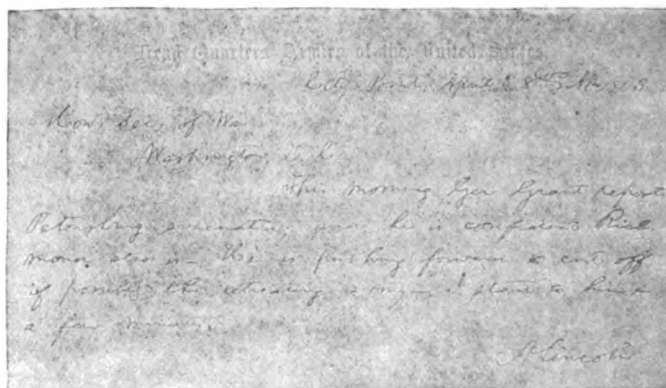 Head Quarters Armies of the United States
City Point, April
Hon. Sec. of War
Washington, D.C.
This morning Gen Grant reports
Petersburg evacuated, he is confident Rich
mond also is. He is pushing forward to cut off
if possible the retreating army. I start to him in
a few minutes.
A Lincoln